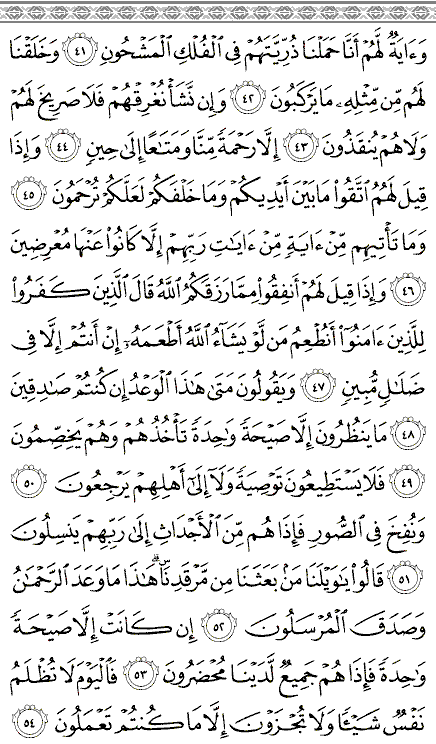 وَءَايَةٌ لَّهُمْ أَنَّا حَمَلْنَا ذُرِّيَّتَهُمْ فِي الْفُلْكِ الْمَشْحُونِ ٤١ وَخَلَقْنَا
لَهُم مِّن مِّثْلِهِۦ مَا يَرْكَبُونَ ٤٢ وَإِن نَّشَأْ نُغْرِقْهُمْ فَلَا صَرِيخَ لَهُمْ
وَلَا هُمْ يُنقَذُونَ ٤٣ إِلَّا رَحْمَةً مِّنَّا وَمَتَاعًا إِلَىٰ حِينٍ ٤٤ وَإِذَا
قِيلَ لَهُمُ اتَّقُوا۟ مَا بَيْنَ أَيْدِيكُمْ وَمَا خَلْفَكُمْ لَعَلَّكُمْ تُرْحَمُونَ ٤٥
وَمَا تَأْتِيهِم مِّنْ ءَايَةٍ مِّنْ ءَايَاتِ رَبِّهِمْ إِلَّا كَانُوا۟ عَنْهَا مُعْرِضِينَ
٤٦ وَإِذَا قِيلَ لَهُمْ أَنفِقُوا۟ مِمَّا رَزَقَكُمُ اللَّهُ قَالَ الَّذِينَ كَفَرُوا۟
لِلَّذِينَ ءَامَنُوٓا۟ أَنُطْعِمُ مَن لَّوْ يَشَآءُ اللَّهُ أَطْعَمَهُۥٓ إِنْ أَنتُمْ إِلَّا فِي
ضَلَالٍ مُّبِينٍ ٤٧ وَيَقُولُونَ مَتَىٰ هَٰذَا الْوَعْدُ إِن كُنتُمْ صَادِقِينَ
٤٨ مَا يَنظُرُونَ إِلَّا صَيْحَةً وَاحِدَةً تَأْخُذُهُمْ وَهُمْ يَخِصِّمُونَ
٤٩ فَلَا يَسْتَطِيعُونَ تَوْصِيَةً وَلَآ إِلَىٰٓ أَهْلِهِمْ يَرْجِعُونَ ٥٠
وَنُفِخَ فِي الصُّورِ فَإِذَا هُم مِّنَ الْأَجْدَاثِ إِلَىٰ رَبِّهِمْ يَنسِلُونَ
٥١ قَالُوا۟ يَاوَيْلَنَا مَنۢ بَعَثَنَا مِن مَّرْقَدِنَا ۜ ۗ هَٰذَا مَا وَعَدَ الرَّحْمَٰنُ
وَصَدَقَ الْمُرْسَلُونَ ٥٢ إِن كَانَتْ إِلَّا صَيْحَةً
وَاحِدَةً فَإِذَا هُمْ جَمِيعٌ لَّدَيْنَا مُحْضَرُونَ ٥٣ فَالْيَوْمَ لَا تُظْلَمُ
نَفْسٌ شَيْـًٔا وَلَا تُجْزَوْنَ إِلَّا مَا كُنتُمْ تَعْمَلُونَ ٥٤